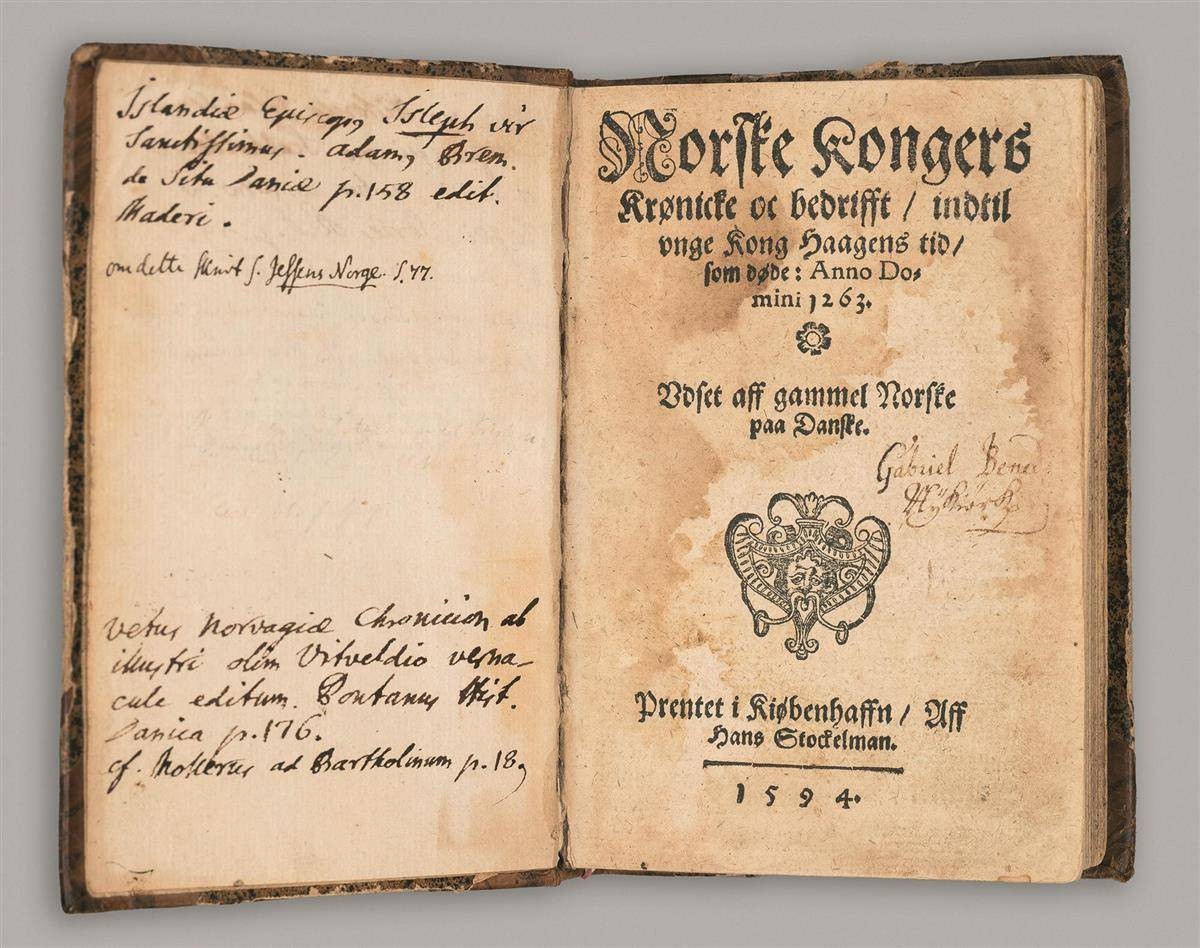 Islandiæ Episcopg Isleph vir
Sanctissimus. Adamg Brem.
de Situ Daniæ p.158 edit.
Maderi.
om dette Skrift s. Jessens Norge. S. 77.
Vetus Norvagiæ Chronicion ab
illustri olim Vitveldio verna-
cule editum. Pontanus Hist.
Danica p.176.
cf. Mollerus ad Bartholinum p.18,
Norske Kongers
Krønicke oc bedrifft / indtil
vnge Kong Haagens tid/
som døde: Anno Do-
mini 1263.
Vdset aff gammel Norske
paa Danske.
Gabriel
Prentet i Kiøbenhaffn / Aff
Hans Stockelman.
1594.